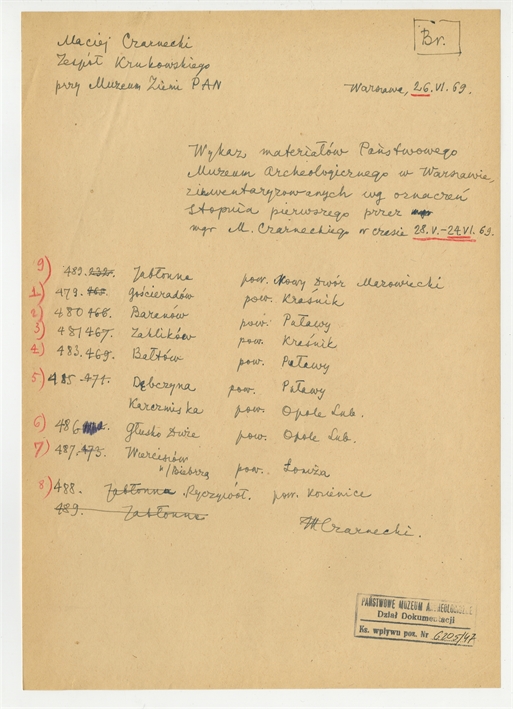 Maciej Czarnecki
Zespół Krukowskiego
przy Muzeum Ziemi PAN
Br.
Warszawa, 26.VI.69.
Wykaz materiałów Państwowego
Muzeum Archeologicznego w Warszawie,
zinwentaryzowanych wg oznaczeń
stopnia pierwszego przez mgr
mgr M. Czarneckiego w czasie 28.V.-24.VI.69.
9) 489. Jabłonna pow. Nowy Dwór Mazowiecki
1) 479. Gościeradów pow. Kraśnik
2) 480 468. pow. Puławy
3) 481 467. Zaklików pow. Kraśnik
4) 483. 469. Bałtów pow. Puławy
5) 485 471. Dąbczyna pow. Puławy
Karczmiska pow. Opole Lub.
6) 486 Głusko Duże pow. Opole Lub.
7) 487. 473. Wierciszów
n/Biebrzą pow. Łomża
8) 488. Jabłonna Ryczywół. pow. Kozienice
489. Jabłonna
M Czarnecki.
PAŃSTWOWE MUZEUM ARCHEOLOGICZNE
Dział Dokumentacji
Ks. wpływu poz. Nr 6205/47